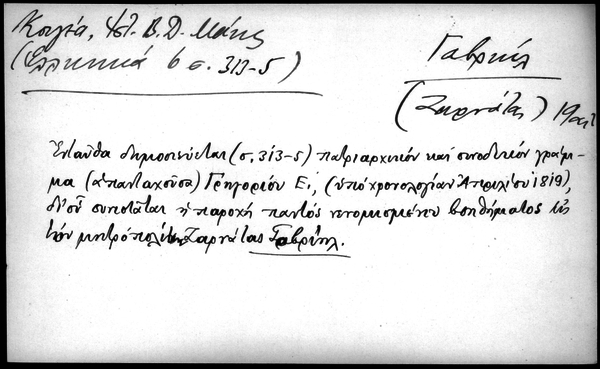 Κουγέα, Σωκ. Β. Δ. Μάνης
(Ἑλληνικά 6 σ. 313-5)
Γαβριήλ
(Ζαρνάτας) 19 αἰ.
Ἐνταῦθα δημοσιεύεται (σ. 313-5) πατριαρχικόν καί συνοδικόν γράμ-
μα (ἀπανταχοῦσα) Γρηγορίου Ε', (ὑπό χρονολογίαν Ἀπριλίου 1819),
δι' οὗ συνιστᾶται ἡ παροχή παντός νενομισμένου βοηθήματος εἰς
τόν μητροπολίτην Ζαρνάτας Γαβριήλ.